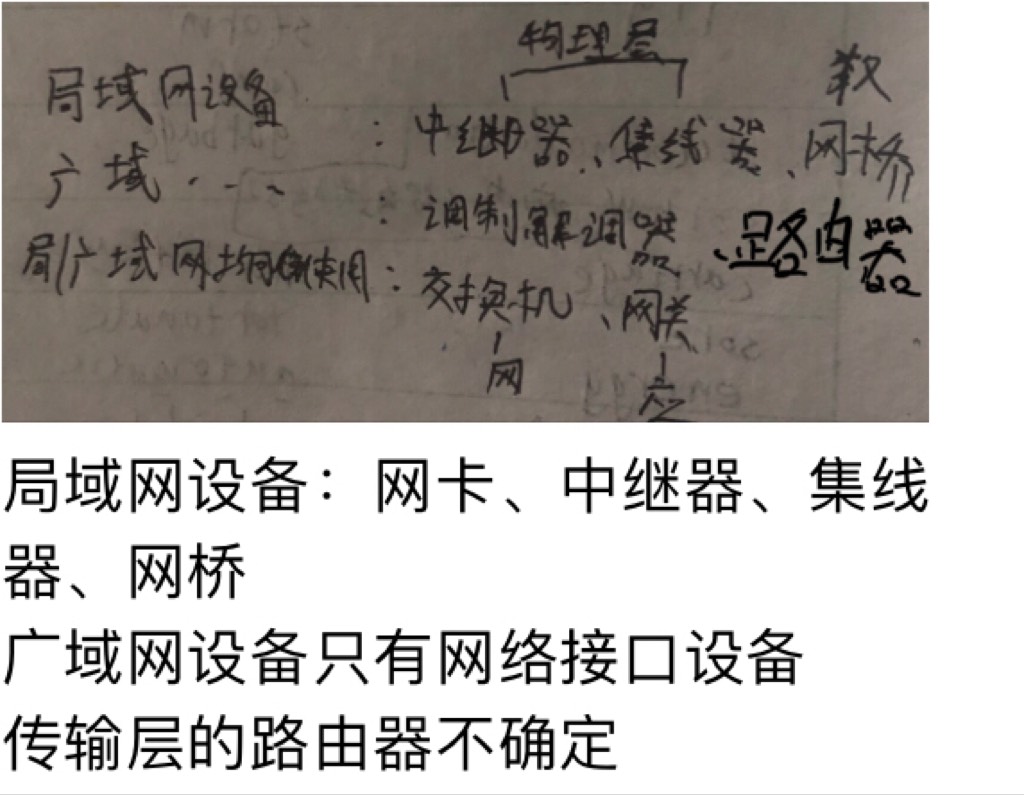 物理层 数
局域网设备:中继器、集线器、网桥
广域···、:调制解调器、路由器
局/广域网均能使用:交换机、网关
网 应
局域网设备：网卡、中继器、集线
器、网桥
广域网设备只有网络接口设备
传输层的路由器不确定